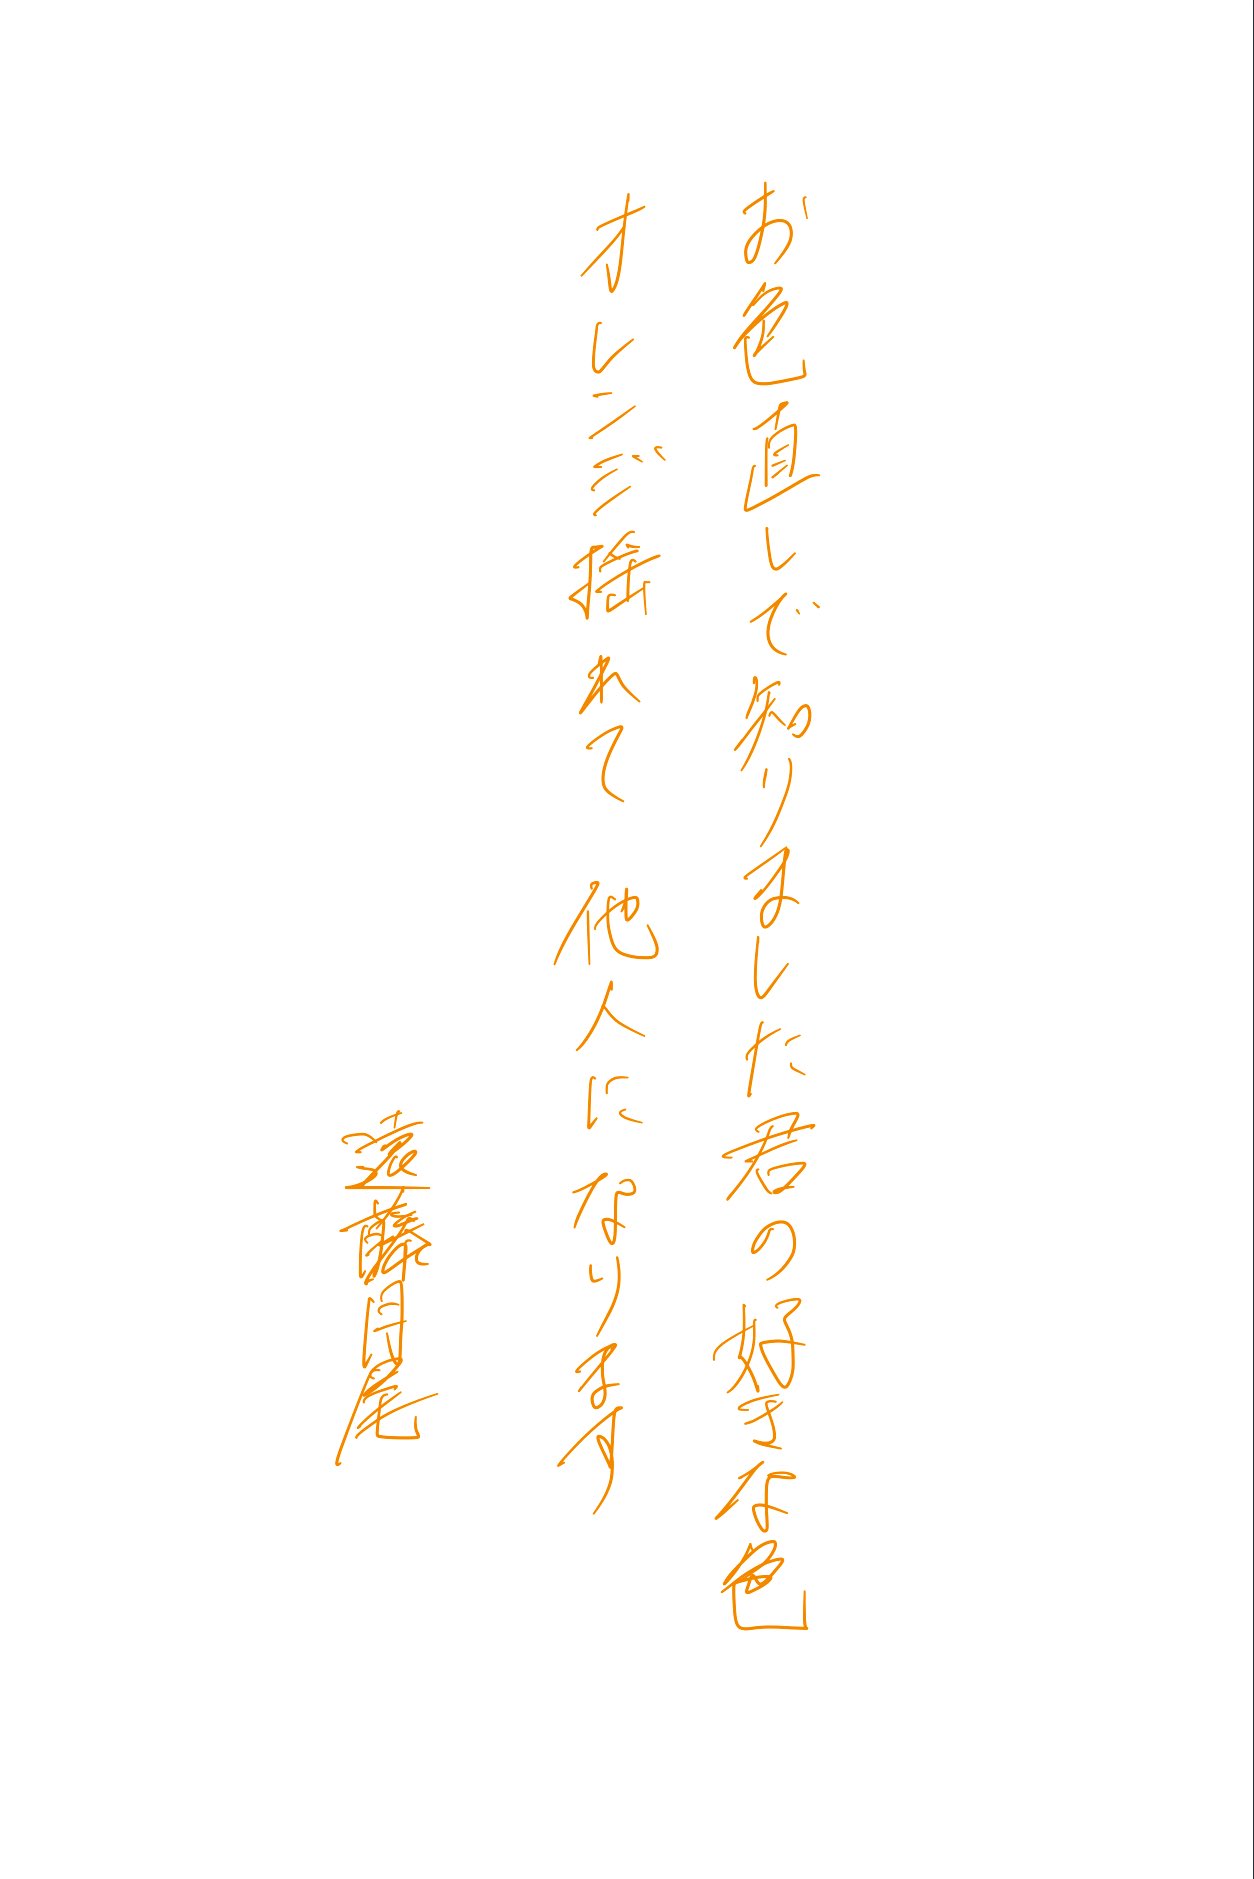 お色直しで知りました君の好きな色
オレンジ揺れて 他人になります
遠藤月尾